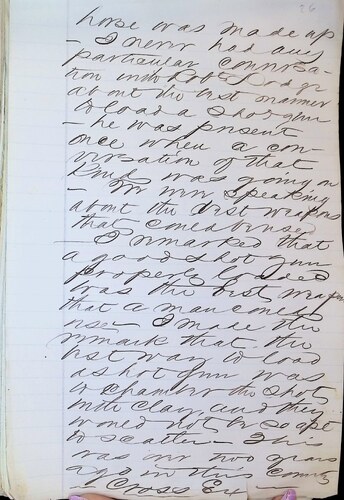 26
horse was made up
- I never had any
particular conversa-
tion with Robt Dodge
about the best manner
to load a shot gun
- he was present
once when a con-
versation of that
kind was going on
- We were speaking
about the best weapons
that could be used
- I remarked that
a good shot gun
properly loaded
was the best weapon
that a man could
use - I made the
remark that the
best way to load
a shot gun was
to chamber the shot
with clay, and they
would not be so apt
to scatter - This
was two years
ago in this County
- Cross Ex